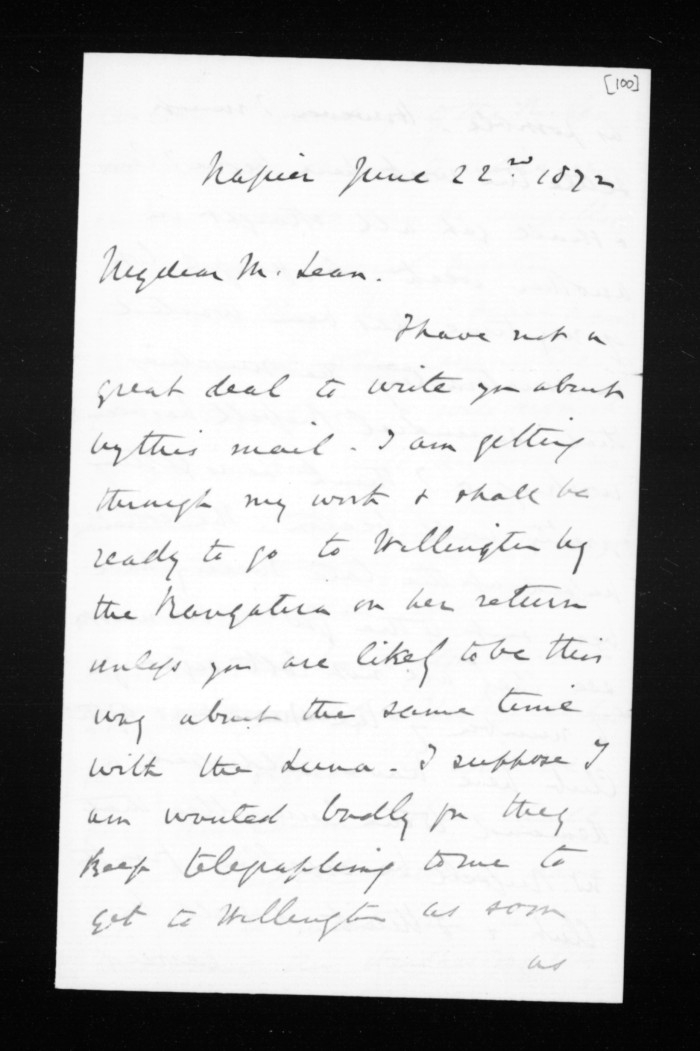 [100]
Napier June 22nd. 1872
My dear McLean.
I have not a
great deal to write you about
by this mail - I am getting
through my work & shall be
ready to go to Wellington by
the Rangatira on her return
unless you are likely to be this
way about the same time
with the Luna - I suppose I
am wanted badly for they
keep telegraphing to me to
get to Wellington as soon
as